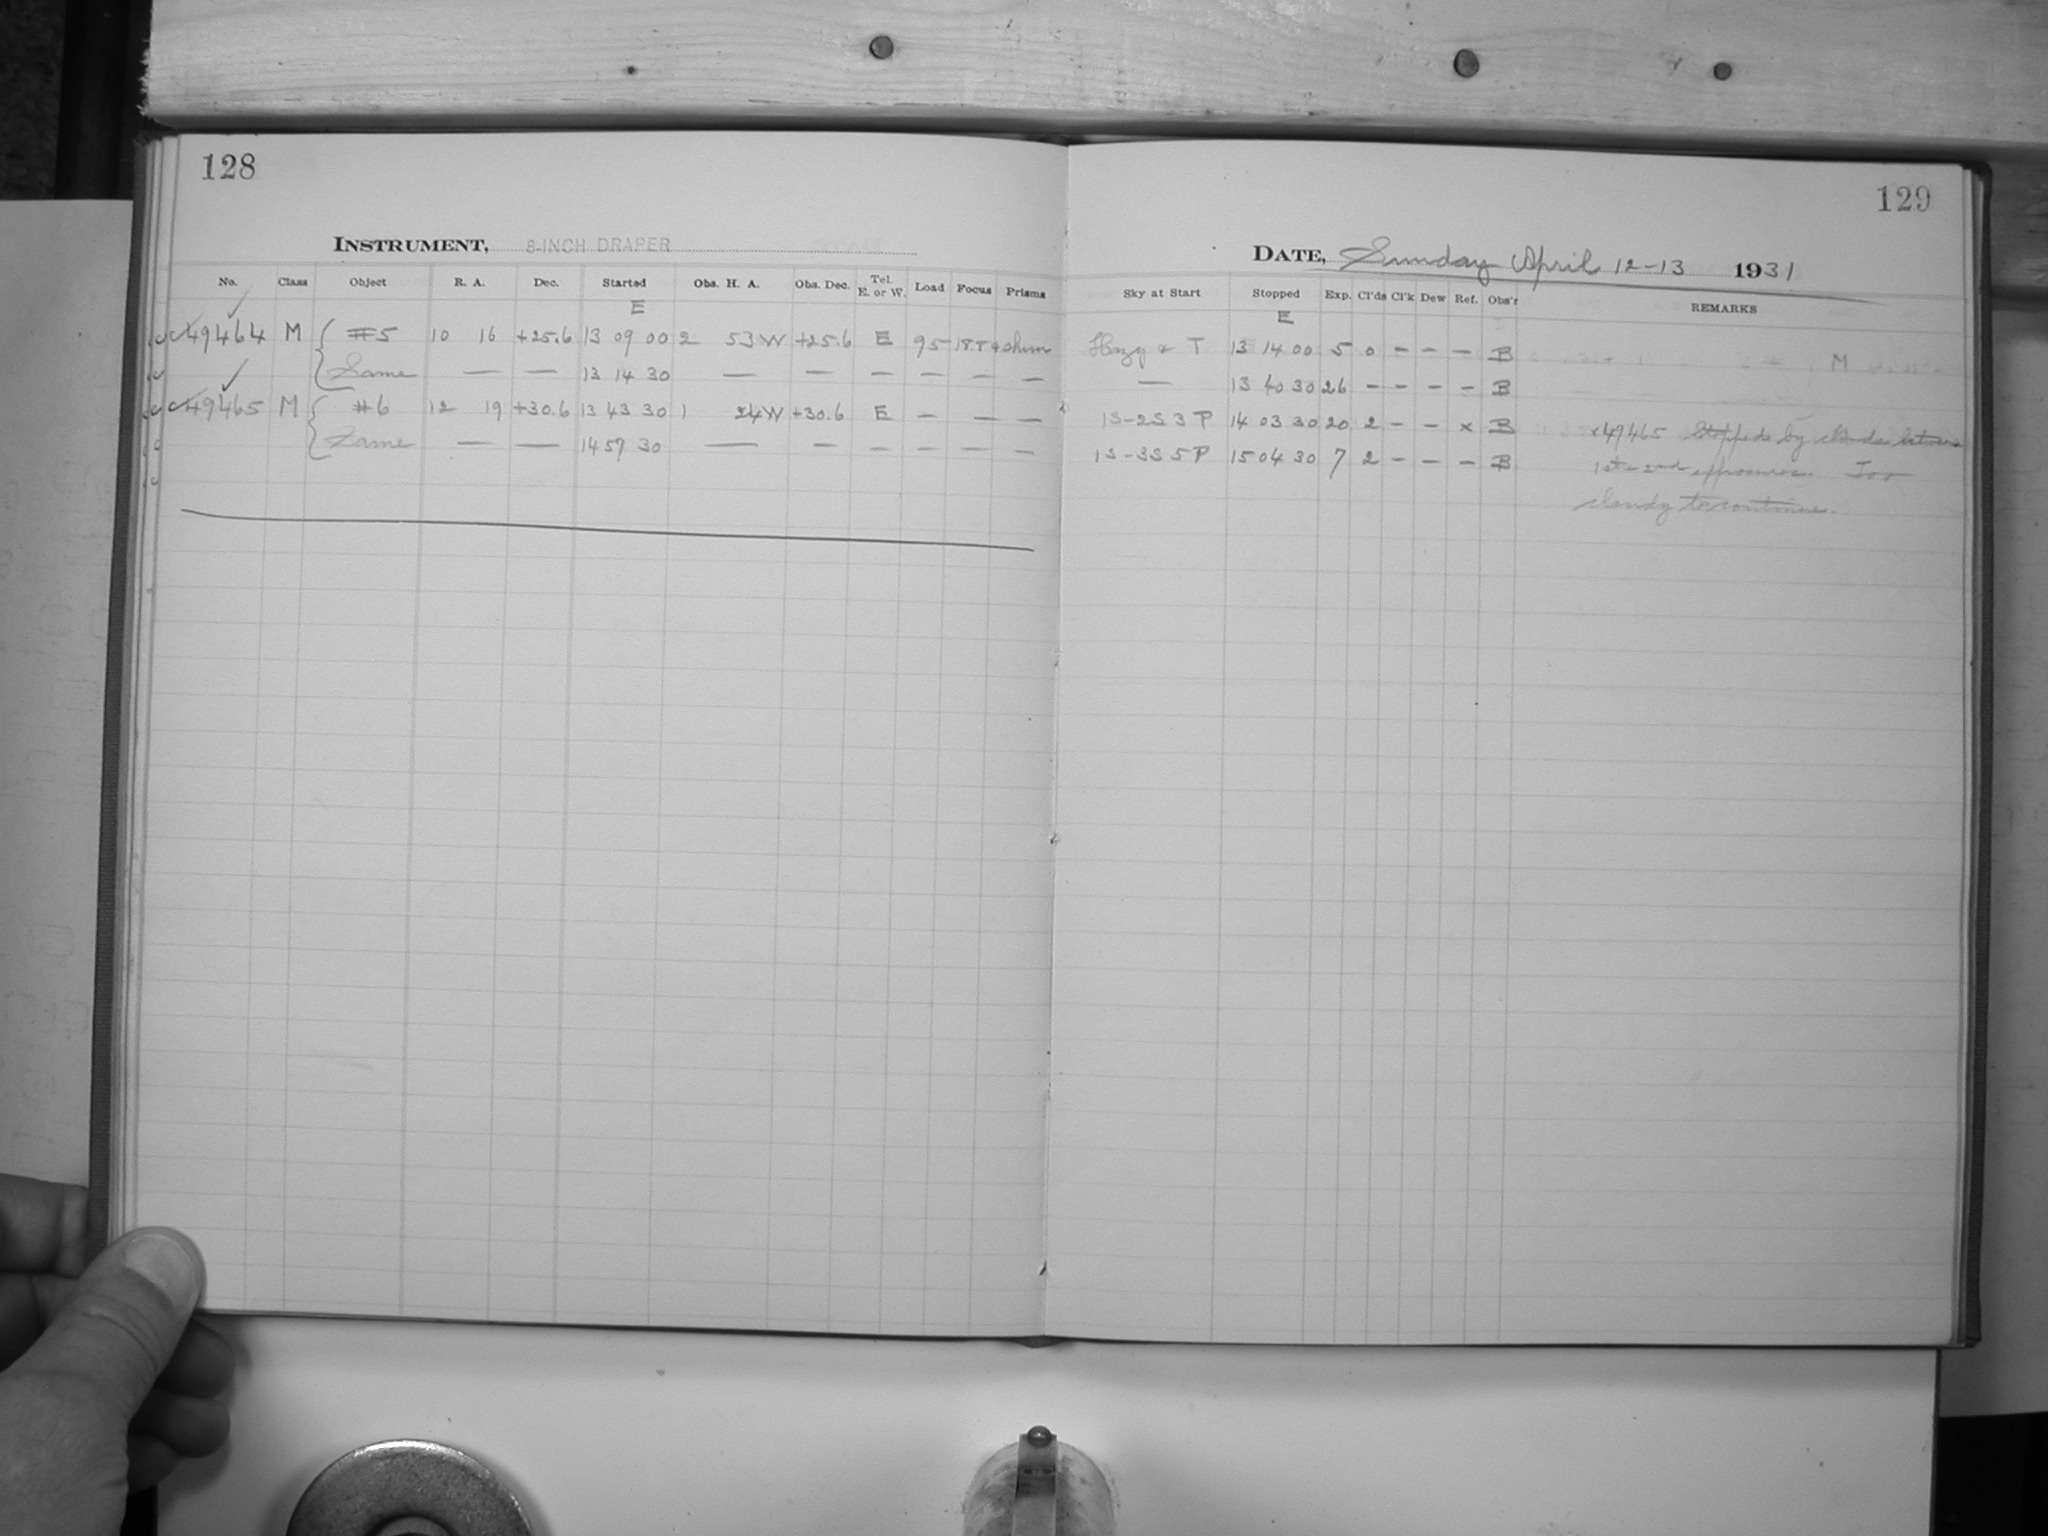 128
129
INSTRUMENT, 8-INCH DRAPER
DATE, Sunday April 12-13 1931
No. Class Object R. A. Dec. Started Obs. H. A. Obs. Dec. Tel. E. or W. Load Focus Prisms
Sky at Start Stopped Exp. Cl'ds Cl'k Dew Ref. Obs'r REMARKS
E
E
49464 M { #5 10 16 +25.6 13 09 00 2 53 W +25.6 E 95
Hazy & T 13 14 00 5 0 – – – B
Same — — 13 14 30 — — – – – –
— 13 40 30 26 – – – – B
49465 M { #6 12 19 +30.6 13 43 30 1 24 W +30.6 E – – –
1S-2S 3 P 14 03 30 20 2 – – x B x49465 Stopped by clouds between
Same — — 14 57 30 — – – – – –
1S-3S 5 P 15 04 30 7 2 – – – B 1st & 2nd exposures. Too
cloudy to continue.